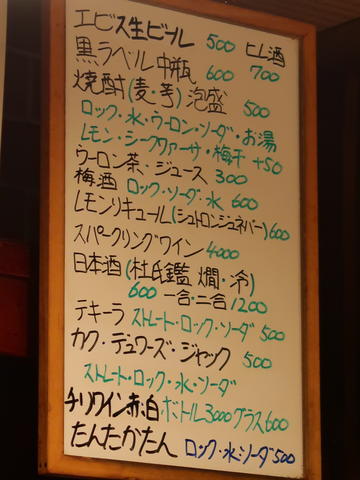 エビス生ビール 500 ヒレ酒 700
黒ラベル中瓶 600
焼酎(麦・芋)泡盛 500
ロック・水・ウーロン・ソーダ・お湯
レモン・シークワァーサ・梅干 +50
ウーロン茶・ジュース 300
梅酒 ロック・ソーダ・水 600
レモンリキュール(シュトロンジュネバー)600
スパークリングワイン 4000
日本酒(杜氏鑑 燗・冷)
600 一合・二合 1200
テキーラ ストレート・ロック・ソーダ 500
カク・デュワーズ・ジャック 500
ストレート・ロック・水・ソーダ
チリワイン赤・白 ボトル3000グラス600
たんたかたん ロック・水・ソーダ500